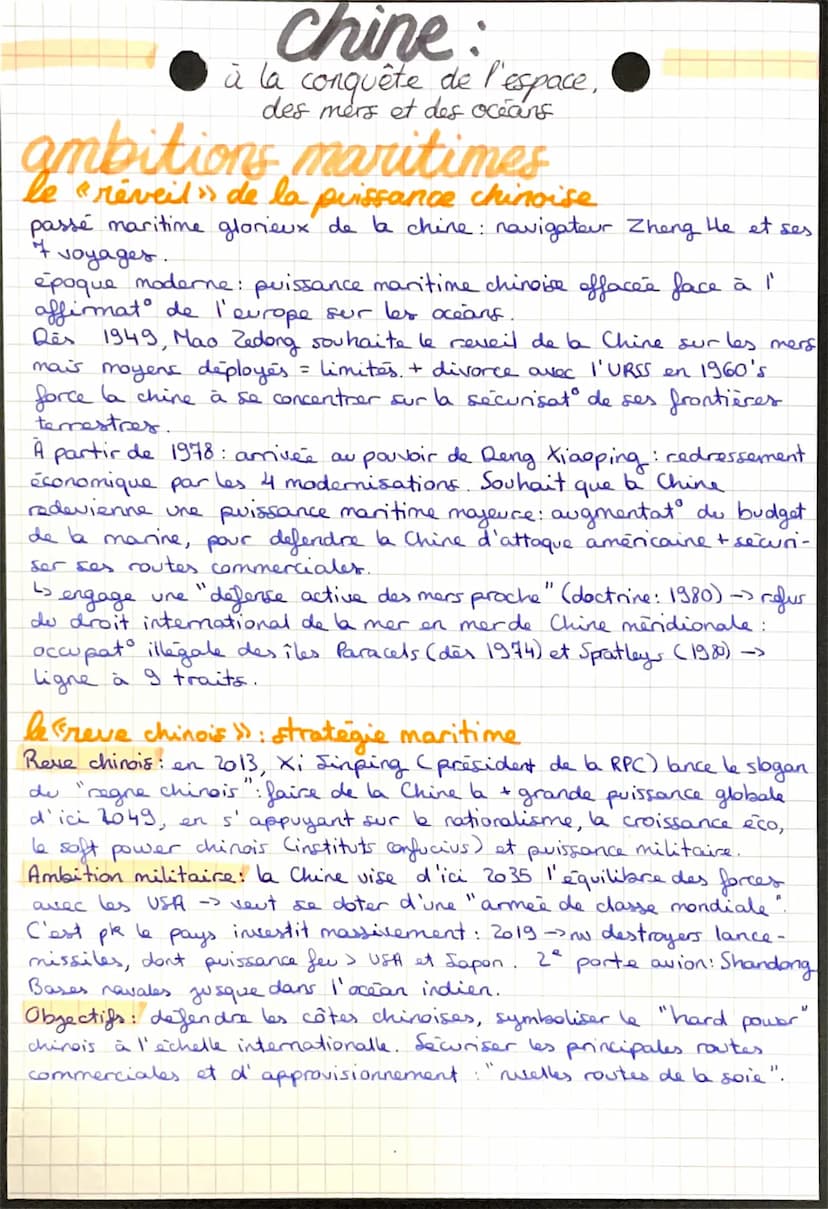 Chine :
à la conquête de l'espace,
des mers et des océans
ambitions maritimes
le « réveil » de la puissance chinoise
passé maritime glorieux de la chine : navigateur Zheng He et ses
7 voyages.
époque moderne : puissance maritime chinoise effacée face à l'
affirmat° de l'europe sur les océans.
Dès 1949, Mao Zedong souhaite le reveil de la Chine sur les mers
mais moyens déployés = limités. + divorce avec l'URSS en 1960's
force la chine à se concentrer sur la sécurisat° de ses frontières
terrestres.
À partir de 1978 : arrivée au pouvoir de Deng Xiaoping : redressement
économique par les 4 modernisations. Souhait que la Chine
redevienne une puissance maritime majeure : augmentat° du budget
de la marine, pour defendre la Chine d'attaque américaine + sécuri-
ser ses routes commerciales.
↳ engage une "défense active des mers proche" (doctrine : 1980) → refus
du droit international de la mer en mer de Chine méridionale :
occupat° illégale des îles Paracels (dès 1974) et Spratleys (1980) →
ligne à 9 traits.
le « reve chinois » : stratégie maritime
Reve chinois : en 2013, Xi Jinping (président de la RPC) lance le slogan
du "regne chinois" : faire de la Chine la + grande puissance globale
d'ici 2049, en s'appuyant sur le nationalisme, la croissance éco,
le soft power chinois (instituts confucius) et puissance militaire.
Ambition militaire : la Chine vise d'ici 2035 l'équilibre des forces
avec les USA → veut se doter d'une "armée de classe mondiale".
C'est pk le pays investit massivement : 2019 → nv destroyers lance-
missiles, dont puissance feu > USA et Japon. 2e porte avion : Shandong
Bases navales jusque dans l'océan indien.
Objectifs : défendre les côtes chinoises, symboliser le "hard power"
chinois à l'échelle internationalle. Sécuriser les principales routes
commerciales et d'approvisionnement : "nvelles routes de la soie".